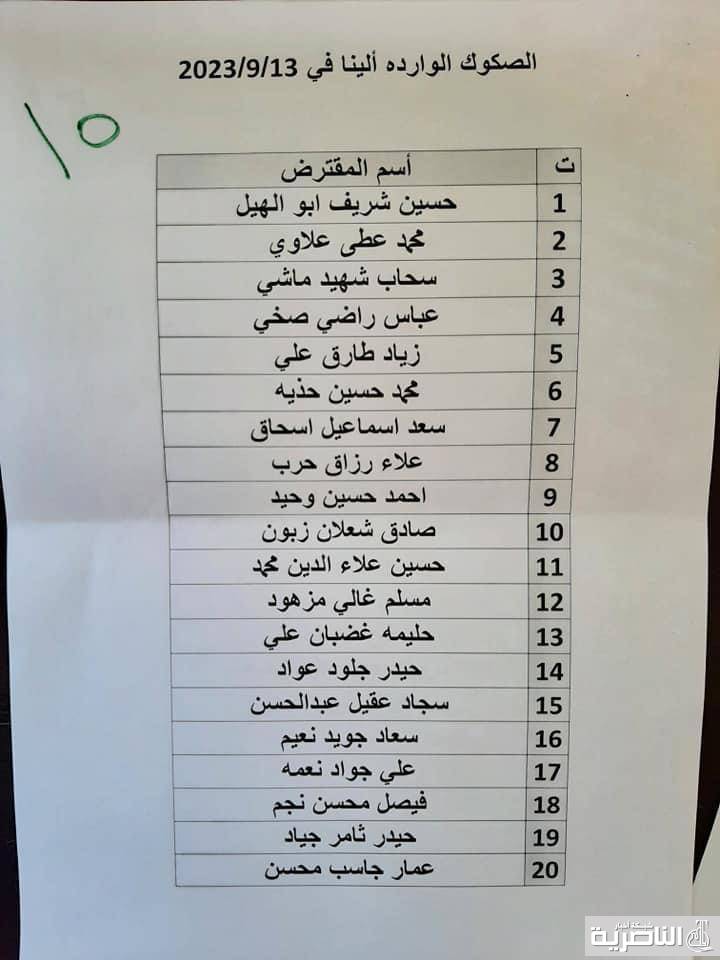 الصكوك الوارده ألينا في 2023/9/13
١٥
ت أسم المقترض
1 حسين شريف ابو الهيل
2 محمد عطى علاوي
3 سحاب شهيد ماشي
4 عباس راضي صخي
5 زياد طارق علي
6 محمد حسين حذيه
7 سعد اسماعيل اسحاق
8 علاء رزاق حرب
9 احمد حسين وحيد
10 صادق شعلان زبون
11 حسين علاء الدين محمد
12 مسلم غالي مزهود
13 حليمه غضبان علي
14 حيدر جلود عواد
15 سجاد عقيل عبدالحسن
16 سعاد جويد نعيم
17 علي جواد نعمه
18 فيصل محسن نجم
19 حيدر ثامر جياد
20 عمار جاسب محسن
شبكة أخبار
الناصرية